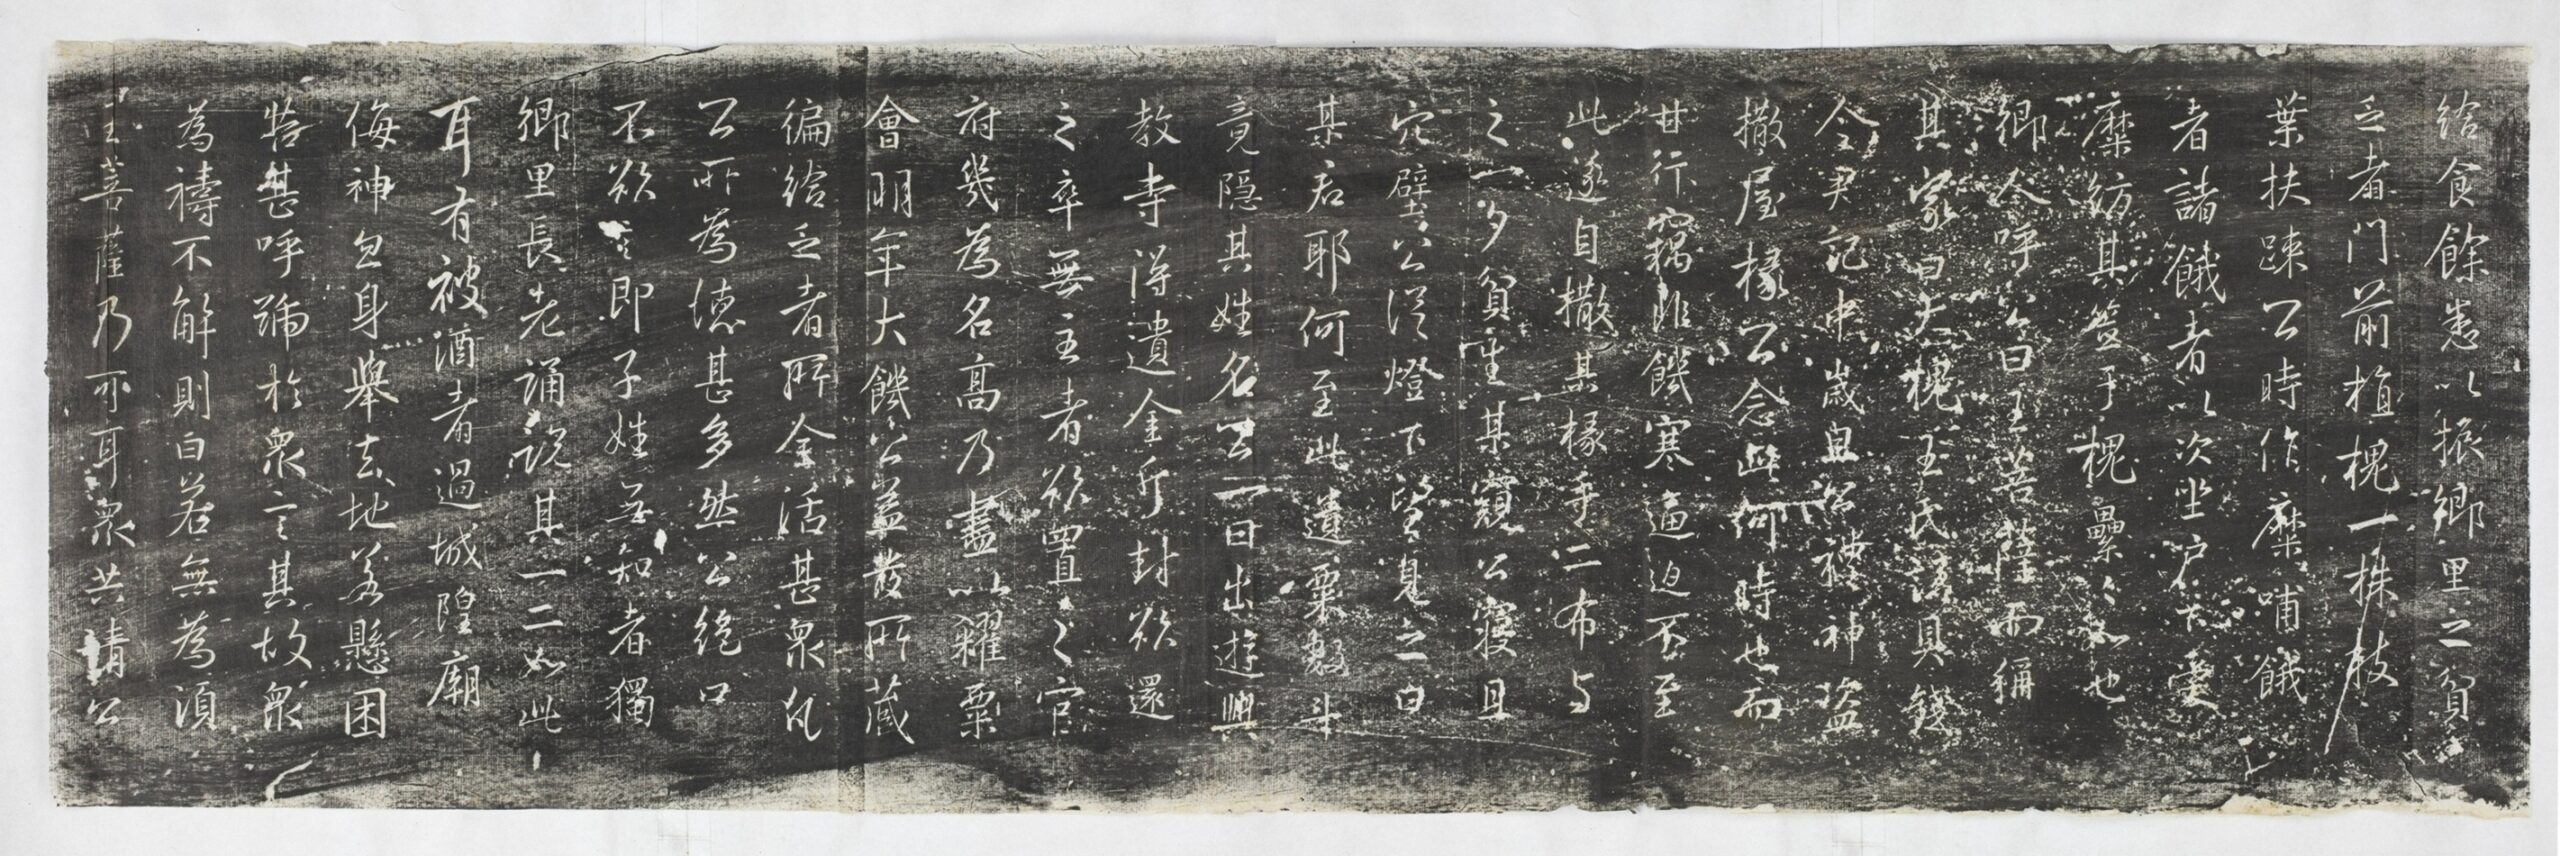 給食餘悉以振鄉里之貧
乏者門前植槐一株枝
葉扶疎公時作糜哺餓
者諸餓者以次坐戶下棄
糜紡其簦于槐纍々如也
鄉人呼公曰王菩薩而稱
其家曰大槐王氏譜具錢
令尹記中歲旦公禮神盜
撒屋椽公念此何時也而
甘行竊非饑寒逼迫不至
此遂自撒其椽手二布与
之一夕貧生某窺公寢且
穴壁公從燈下望見之曰
某君耶何至此遺粟數斗
竟隱其姓名云一日出遊興
教寺得遺金斤封欲還
之卒無主者欲置之官
府幾為名高乃盡以糴粟
會明年大饑公盖發所藏
徧給乏者所全活甚衆凡
公所為德甚多然公絶口
不欲言即子姓無知者獨
鄉里長老誦說其一二如此
耳有被酒者過城隍廟
侮神忽身舉去地若懸困
苦甚呼號於衆言其故衆
為禱不解則自若無為須
王菩薩乃可耳衆共請公